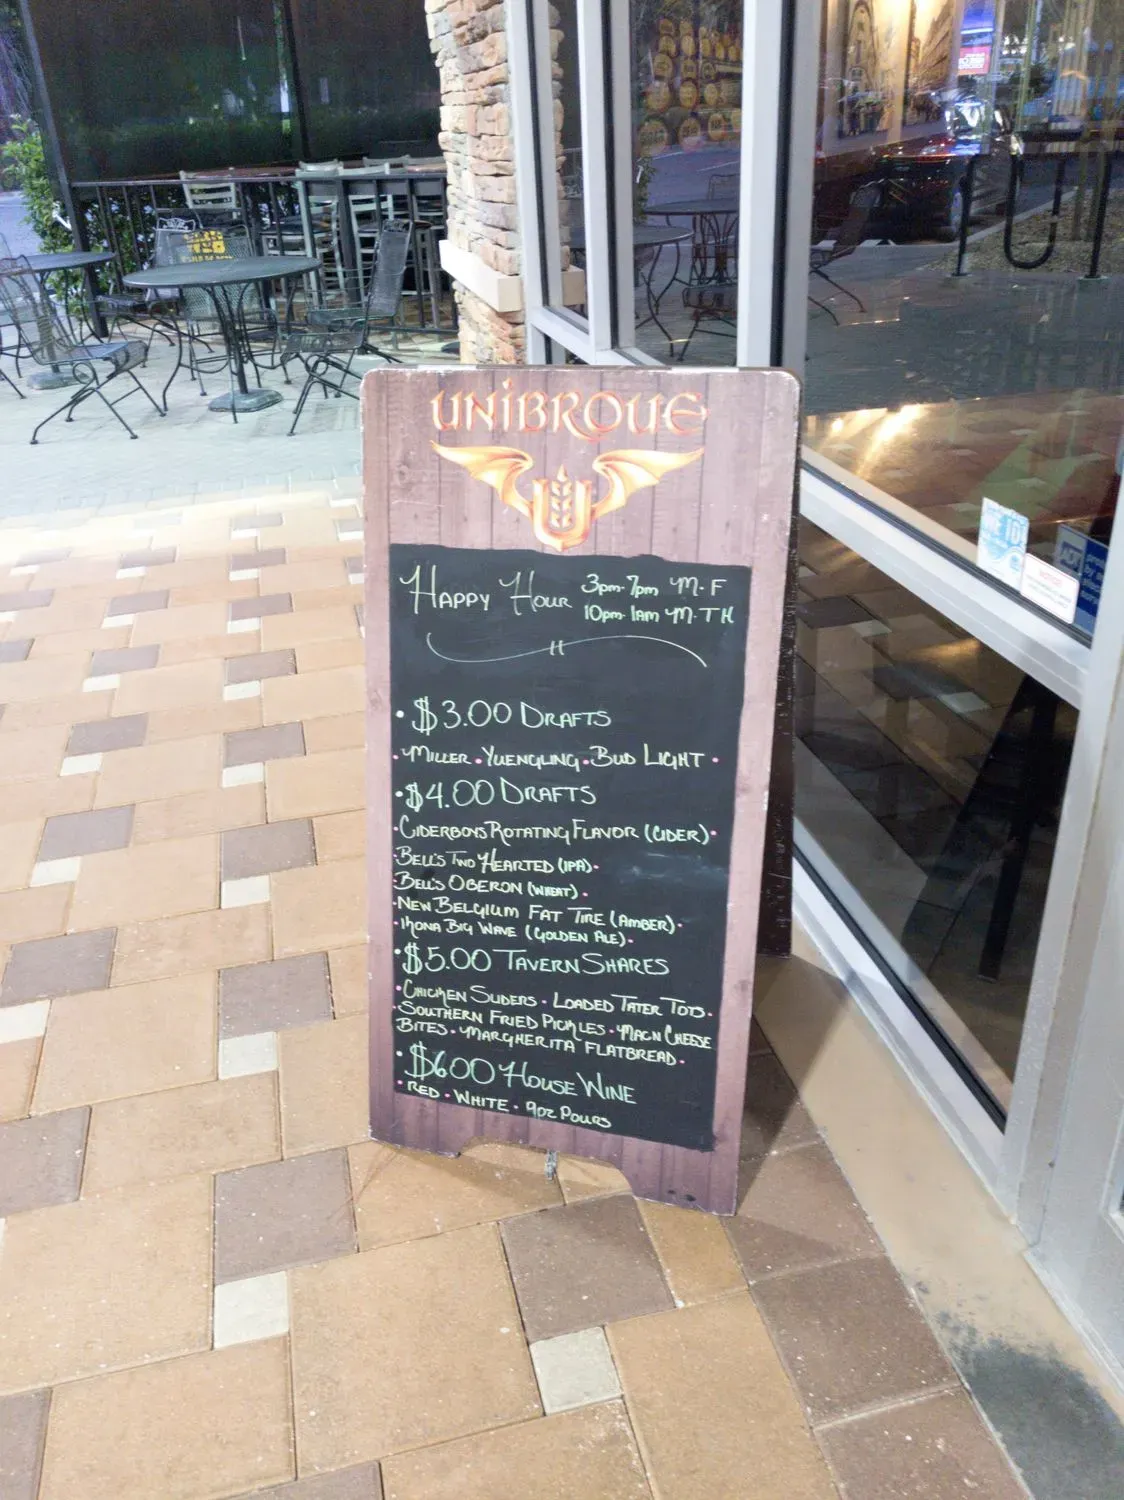 UNIBROUE
U
HAPPY HOUR 3pm-7pm M-F
10pm-1am M-TH
• $3.00 DRAFTS
• MILLER • YUENGLING • BUD LIGHT •
• $4.00 DRAFTS
• CIDERBOYS ROTATING FLAVOR (CIDER) •
• BELL'S TWO HEARTED (IPA) •
• BELL'S OBERON (WHEAT) •
• NEW BELGIUM FAT TIRE (AMBER) •
• KONA BIG WAVE (GOLDEN ALE) •
• $5.00 TAVERN SHARES
• CHICKEN SLIDERS • LOADED TATER TOTS •
• SOUTHERN FRIED PICKLES • MAC N CHEESE
BITES • MARGHERITA FLATBREAD •
• $6.00 HOUSE WINE
• RED • WHITE • 9oz POURS
WE ID
NOTICE